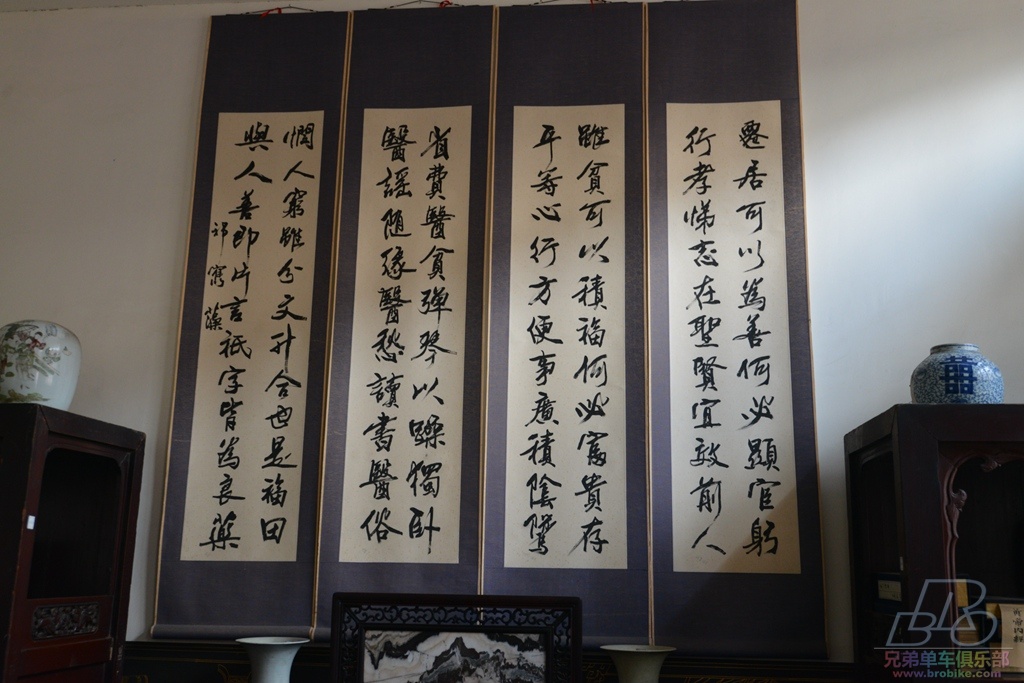 居可以為善何必顯官躬
行孝悌志在聖賢宜效前人
雖貧可以積福何必富貴存
平等心行方便事廣積陰騭
省費醫貧彈琴以躁獨臥
醫謡随緣醫愁讀書醫俗
憫人窮雖分文升合也是福田
與人善即片言祇字皆為良藥
祁寯藻
BRO
兄弟单车俱乐部
www.brobike.com